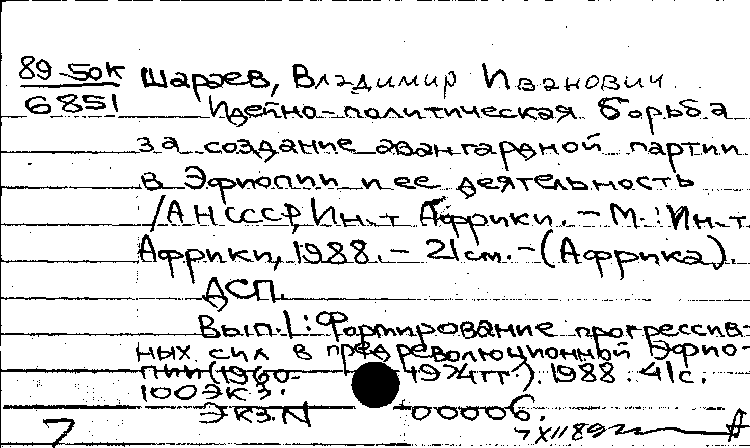 89-50к Шараев, Владимир Иванович.
6851 Идейно-политическая борьба
за создание авангардной партии
в Эфиопии и ее деятельность
/АН СССР, Ин-т Африки. – М.: Ин-т
Африки, 1988. – 21 см. – (Африка).
ДСП.
Вып. 1: Формирование прогрессив-
ных сил в предреволюционной Эфио-
пии (1960- 1974гг.). 1988. 41с.
100 экз.
Экз. N 00006.
7 7 XII 89